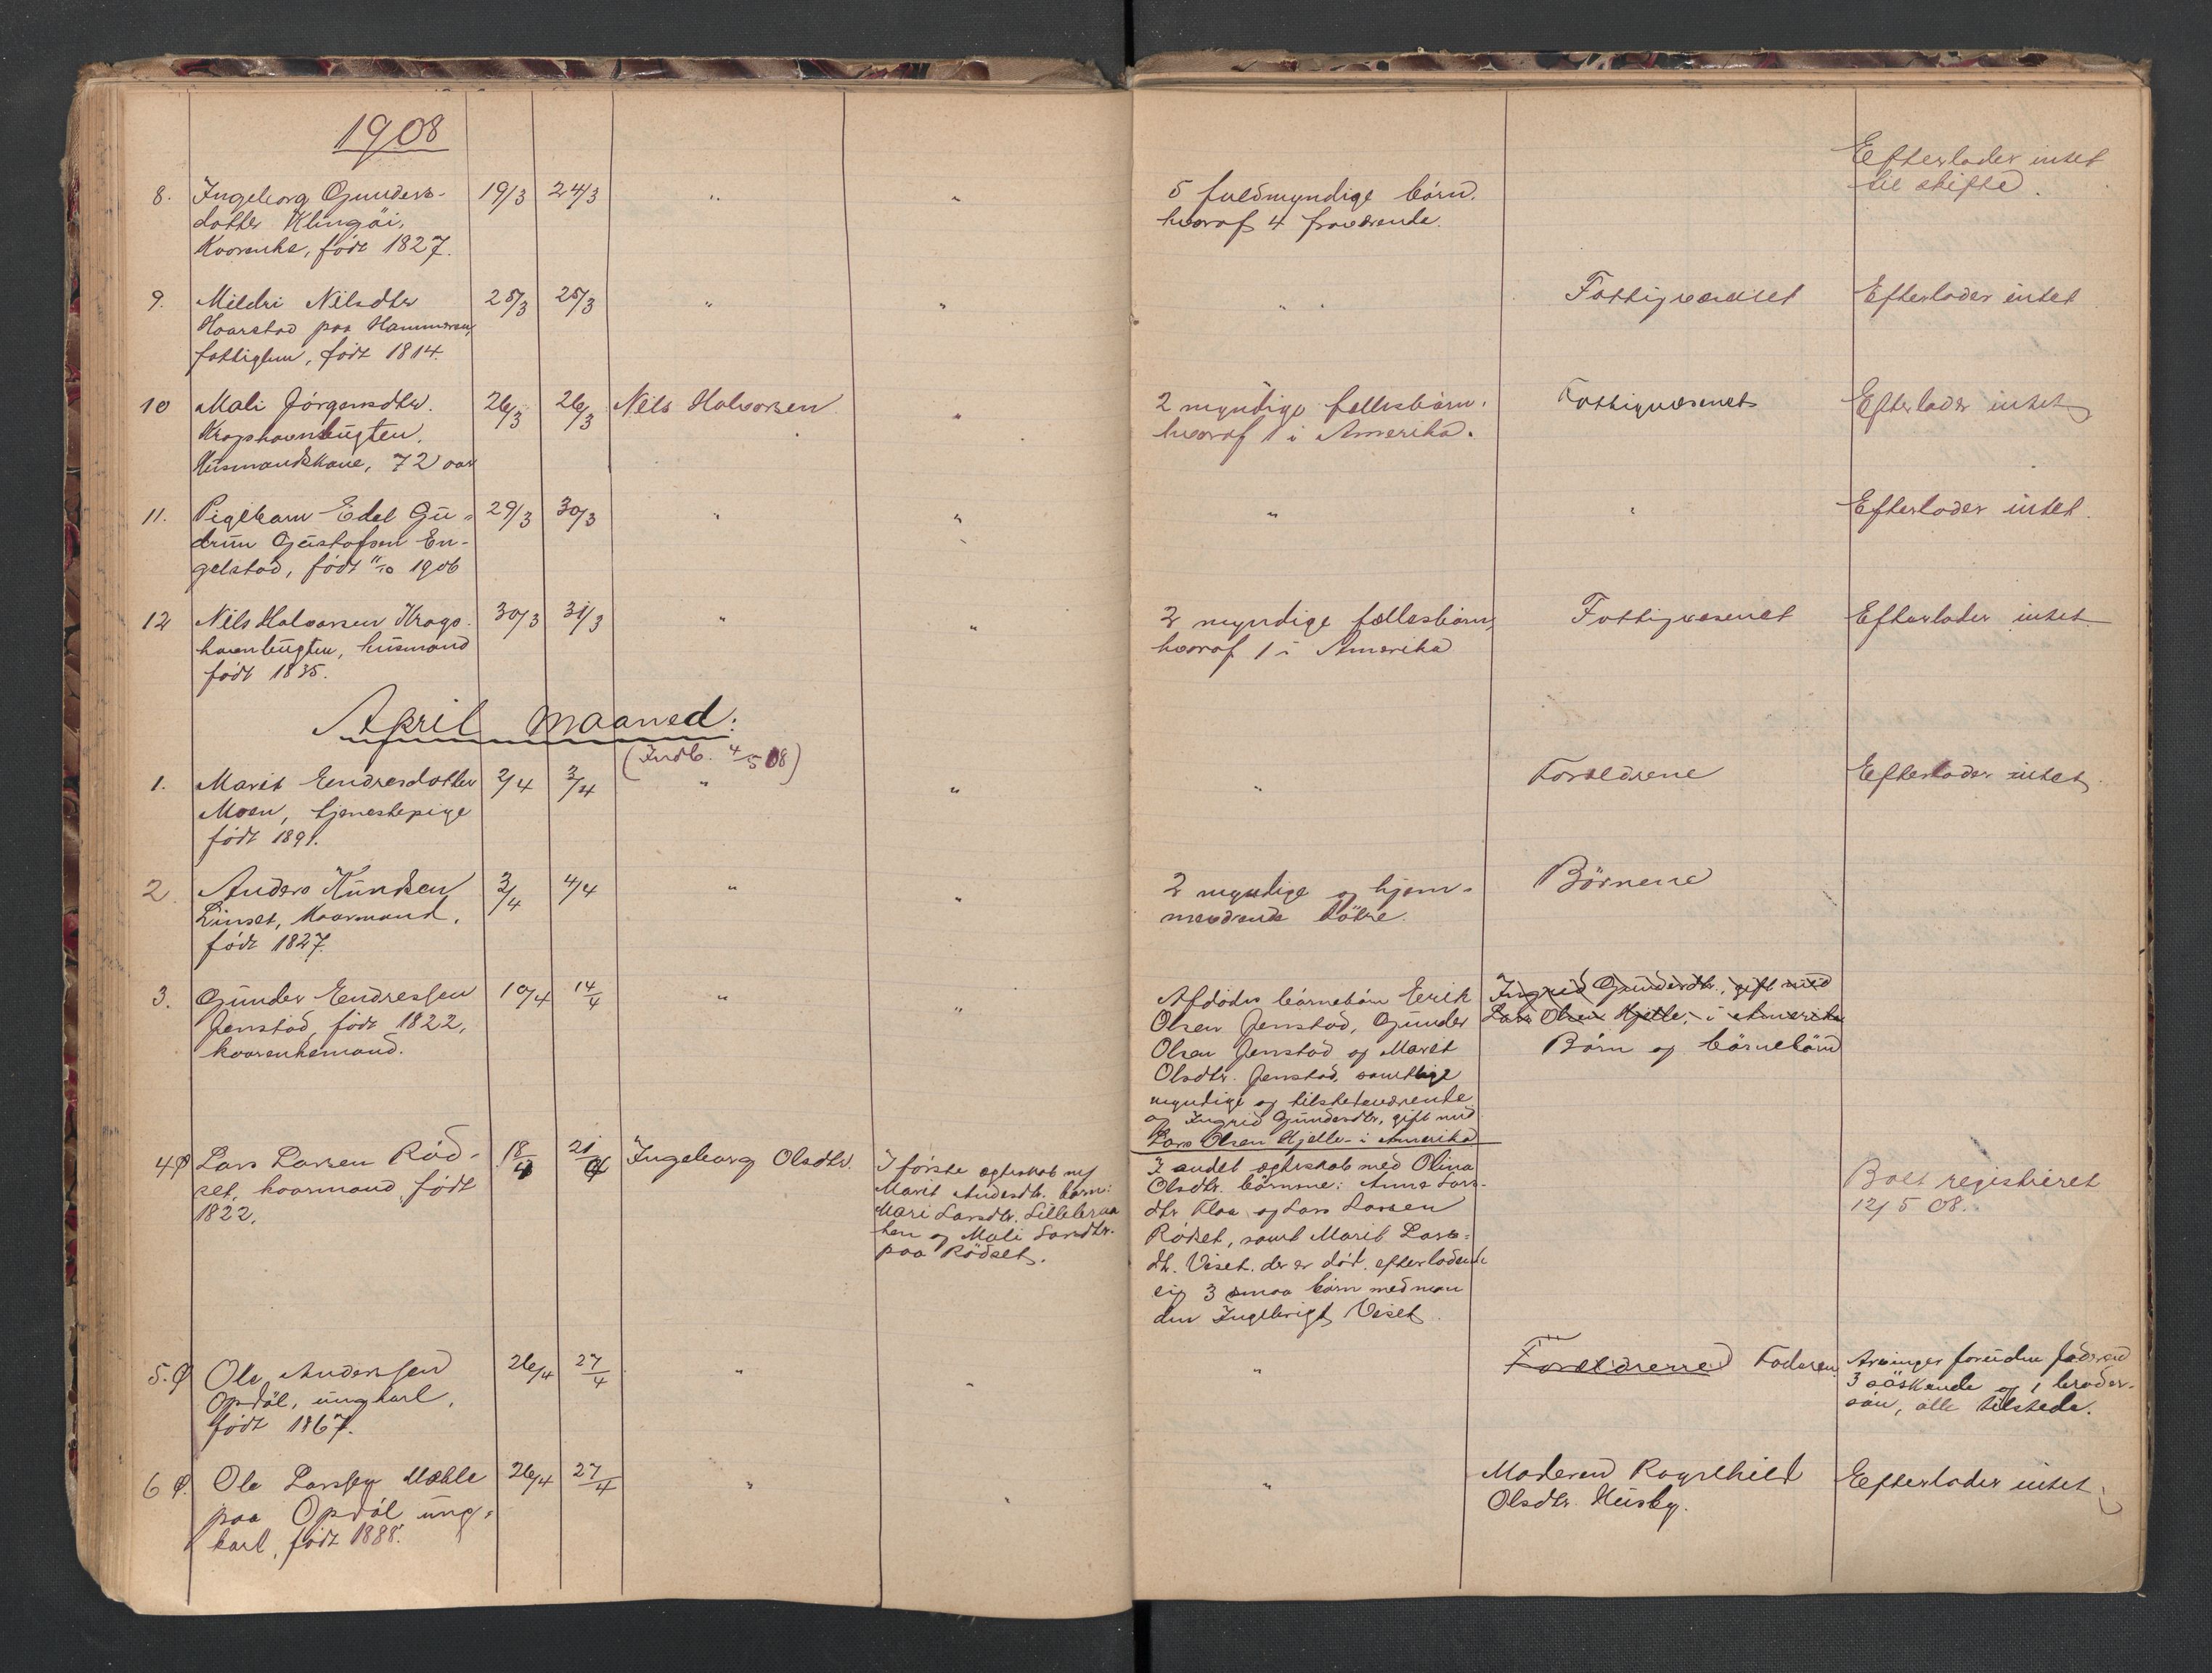 1908
8. Ingeborg Gunders-
datter Klingöi,
Kaarenke, født 1827.
19/3 24/3 " "
5 fuldmyndige börn.
hvoraf 4 fraværende.
Efterlader intet
til skifte.
9. Mildri Nilsdtr
Haarstad paa Hammeren,
fattiglem, født 1814.
25/3 25/3 " " "
Fattigvæsenet
Efterlader intet
10 Mali Jörgensdtr.
Kragshavenbugten.
Husmandskone, 72 aar
26/3 26/3 Nils Halvorsen "
2 myndige fællesbörn.
hvoraf 1 i Amerika.
Fattigvæsenet
Efterlader intet
11. Pigebarn Edel Gu-
drun Gustafsen En-
gelstad, født 11/10 1906
29/3 30/3 " " " "
Efterlader intet.
12 Nils Halvorsen Krags-
havenbugten, husmand
født 1835.
30/3 31/3 " "
2 myndige fællesbörn,
hvoraf 1 i Amerika
Fattigvæsenet
Efterlader intet
April maaned:
(Indb. 4/5 08)
1. Marit Eendresdatter
Moen, tjenestepige
født 1891.
2/4 3/4 " " "
Forældrene
Efterlader intet.
2. Anders Knudsen
Linset, kaarmand,
født 1827.
3/4 4/4 " "
2 myndige og hjem-
meværende døtre.
Börnene
3. Gunder Eendressen
Jenstad, født 1822,
kaarenkemand.
10/4 14/4 " "
Afdödes börnebörn Erik
Olsen Jenstad, Gunder
Olsen Jenstad og Marit
Olsdtr. Jenstad, samtlige
myndige og tilstedeværende
og Ingrid Gundersdtr, gift med
Lars Olsen Hjelle i Amerika
Ingrid Gundersdtr, gift med
Lars Olsen Hjelle, i Amerika
Börn og börnebörn
4 Ø Lars Larsen Rød-
set, kaarmand, født
1822.
18/4 21/4 Ingeborg Olsdtr.
I første ægteskab med
Marit Andersdtr. barn:
Mari Larsdtr. Lillebraa
ten og Mali Larsdtr.
paa Rödset.
I andet ægteskab med Olina
Olsdtr. börnene: Anne Lars-
dtr Flaa og Lars Larsen
Rødset, samt Marit Lars-
dtr. Viset. der er död. efterladende
sig 3 smaa börn med man
den Ingebrigt Viset.
Boet registreret
12/5 08.
5. Ø Ole Anderssen
Opdöl, ungkarl,
født 1867.
26/4 27/4 " " "
Forældrene Faderen
Arvinger foruden faderen
3 söskende og 1 broder-
sön, alle tilstede.
6 Ø. Ole Larssen Mæhle
paa Opdöl ung-
karl, født 1888.
26/4 27/4 " " "
Moderen Ragnhild
Olsdtr. Husby.
Efterlader intet.